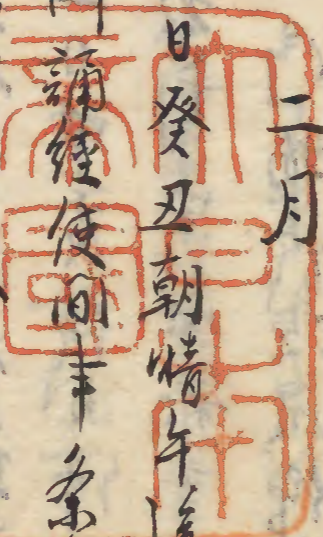 二月
日癸丑朝晴午後
誦経使間事条